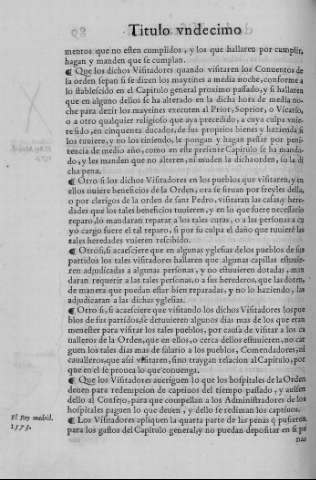 Titulo vndecimo
mentos que no esten cumplidos, y los que hallaren por cumplir,
hagan y manden que se cumplan.
¶ Que los dichos Visitadores quando visitaren los Conuentos de
la orden sepan si se dizen los maytines a media noche, conforme a
lo stablescido en el Capitulo general proximo passado, y si hallaren
que en alguno dellos se ha alterado en la dicha hora de media no-
che para dezir los maytines executen al Prior, Soprior, o Vicario,
o a otro qualquier religioso que aya precedido, a cuya culpa vuie-
re sido, en cinquenta ducados, de sus propios bienes y hazienda si
los tuuiere, y no los tiniendo, le pongan y hagan passar por peni-
tencia de medio año, como en este presente Capitulo se ha manda-
do, y les manden que no alteren, ni muden la dicha orden, so la di
cha pena.
¶ Otro si los dichos Visitadores en los pueblos que visitaren, y en
ellos vuiere beneficios de la Orden, ora se siruan por freyles della,
o por clerigos de la orden de sant Pedro, visitaran las casas y here-
dades que los tales beneficios tuuieren, y en lo que fuere necessario
reparo, lo mandaran reparar a los tales curas, o a las personas a cu
yo cargo fuere el tal reparo, si por su culpa el daño que tuuiere las
tales heredades vuieren rescibido.
¶ Otrosi, si acaesciere que en algunas yglesias de los pueblos de sus
partidos los tales visitadores hallaren que algunas capillas estuuie-
ren adjudicadas a algunas personas, y no estuuieren dotadas, man
daran requerir a las tales personas, o a sus herederos, que las doten,
de manera que puedan estar bien reparadas, y no lo haziendo, las
adjudicaran a las dichas yglesias.
¶ Otro si, si acaesciere que visitando los dichos Visitadores los pue
blos de sus partidos, se detuuieren algunos dias mas de los que eran
menester para visitar los tales pueblos, por causa de visitar a los ca
ualleros de la Orden, que en ellos, o cerca dellos estuuieren, no car
guen los tales dias mas de salario a los pueblos, Comendadores, ni
caualleros, que assi visitaren, sino traygan relacion al Capitulo, por
que en el se prouea lo que conuenga.
¶ Que los Visitadores aueriguen lo que los hospitales de la Orden
deuen para redempcion de captiuos del tiempo passado, y auisen
dello al Consejo, para que compellan a los Administradores de los
hospitales paguen lo que deuen, y dello se rediman los captiuos.
El Rey madrid.
1573.
¶ Los Visitadores apliquen la quarta parte de las penas q̃ pusieren
para los gastos del Capitulo general, y no puedan depositar en si pe
nas